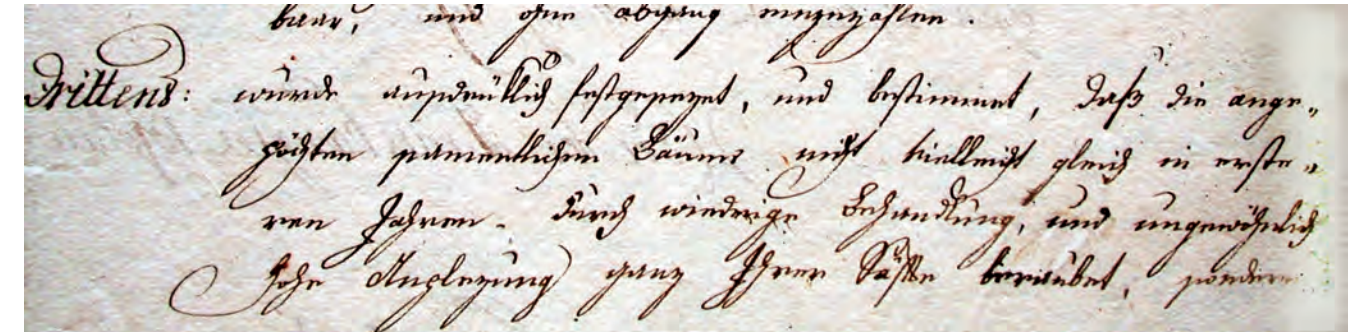 baar, und ohne abgang einzuzahlen.
Drittens: wurde ausdrüklich festgesezet, und bestimmet, daß die ange„
pöchten samentlichen Bäume nicht vielleicht gleich in erste„
ren Jahren durch wiedrige Behandlung, und ungewöhnlich
hohe Anplezung ganz Ihrer Säfte beraubet, sondern